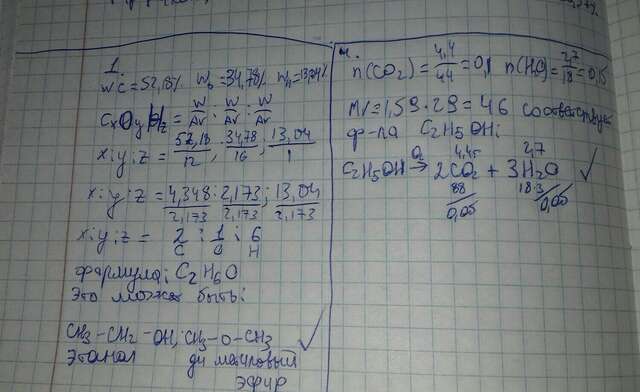 1.
WC=52,18% Wo=34,78% WH=13,04%
CxOyHz = W/Ar : W/Ar : W/Ar
x:y:z = 52,18/12 : 34,78/16 : 13,04/1
x:y:z = 4,348/2,173 : 2,173/2,173 : 13,04/2,173
x:y:z = 2 : 1 : 6
C O H
формула: C2H6O
Это может быть:
CH3-CH2-OH; CH3-O-CH3
Этанол диметиловый
эфир
4.
n(CO2)=4,4/44=0,1 n(H2O)=2,7/18=0,15
M=1,59·29=46 соответствует
ф-ла C2H5OH:
O2 4,45 2,7
C2H5OH → 2CO2 + 3H2O
88 18·3
0,05 0,05